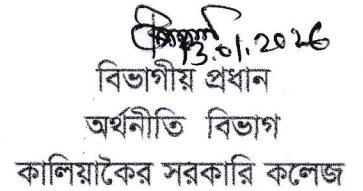 13.01.2026
বিভাগীয় প্রধান
অর্থনীতি বিভাগ
কালিয়াকৈর সরকারি কলেজ